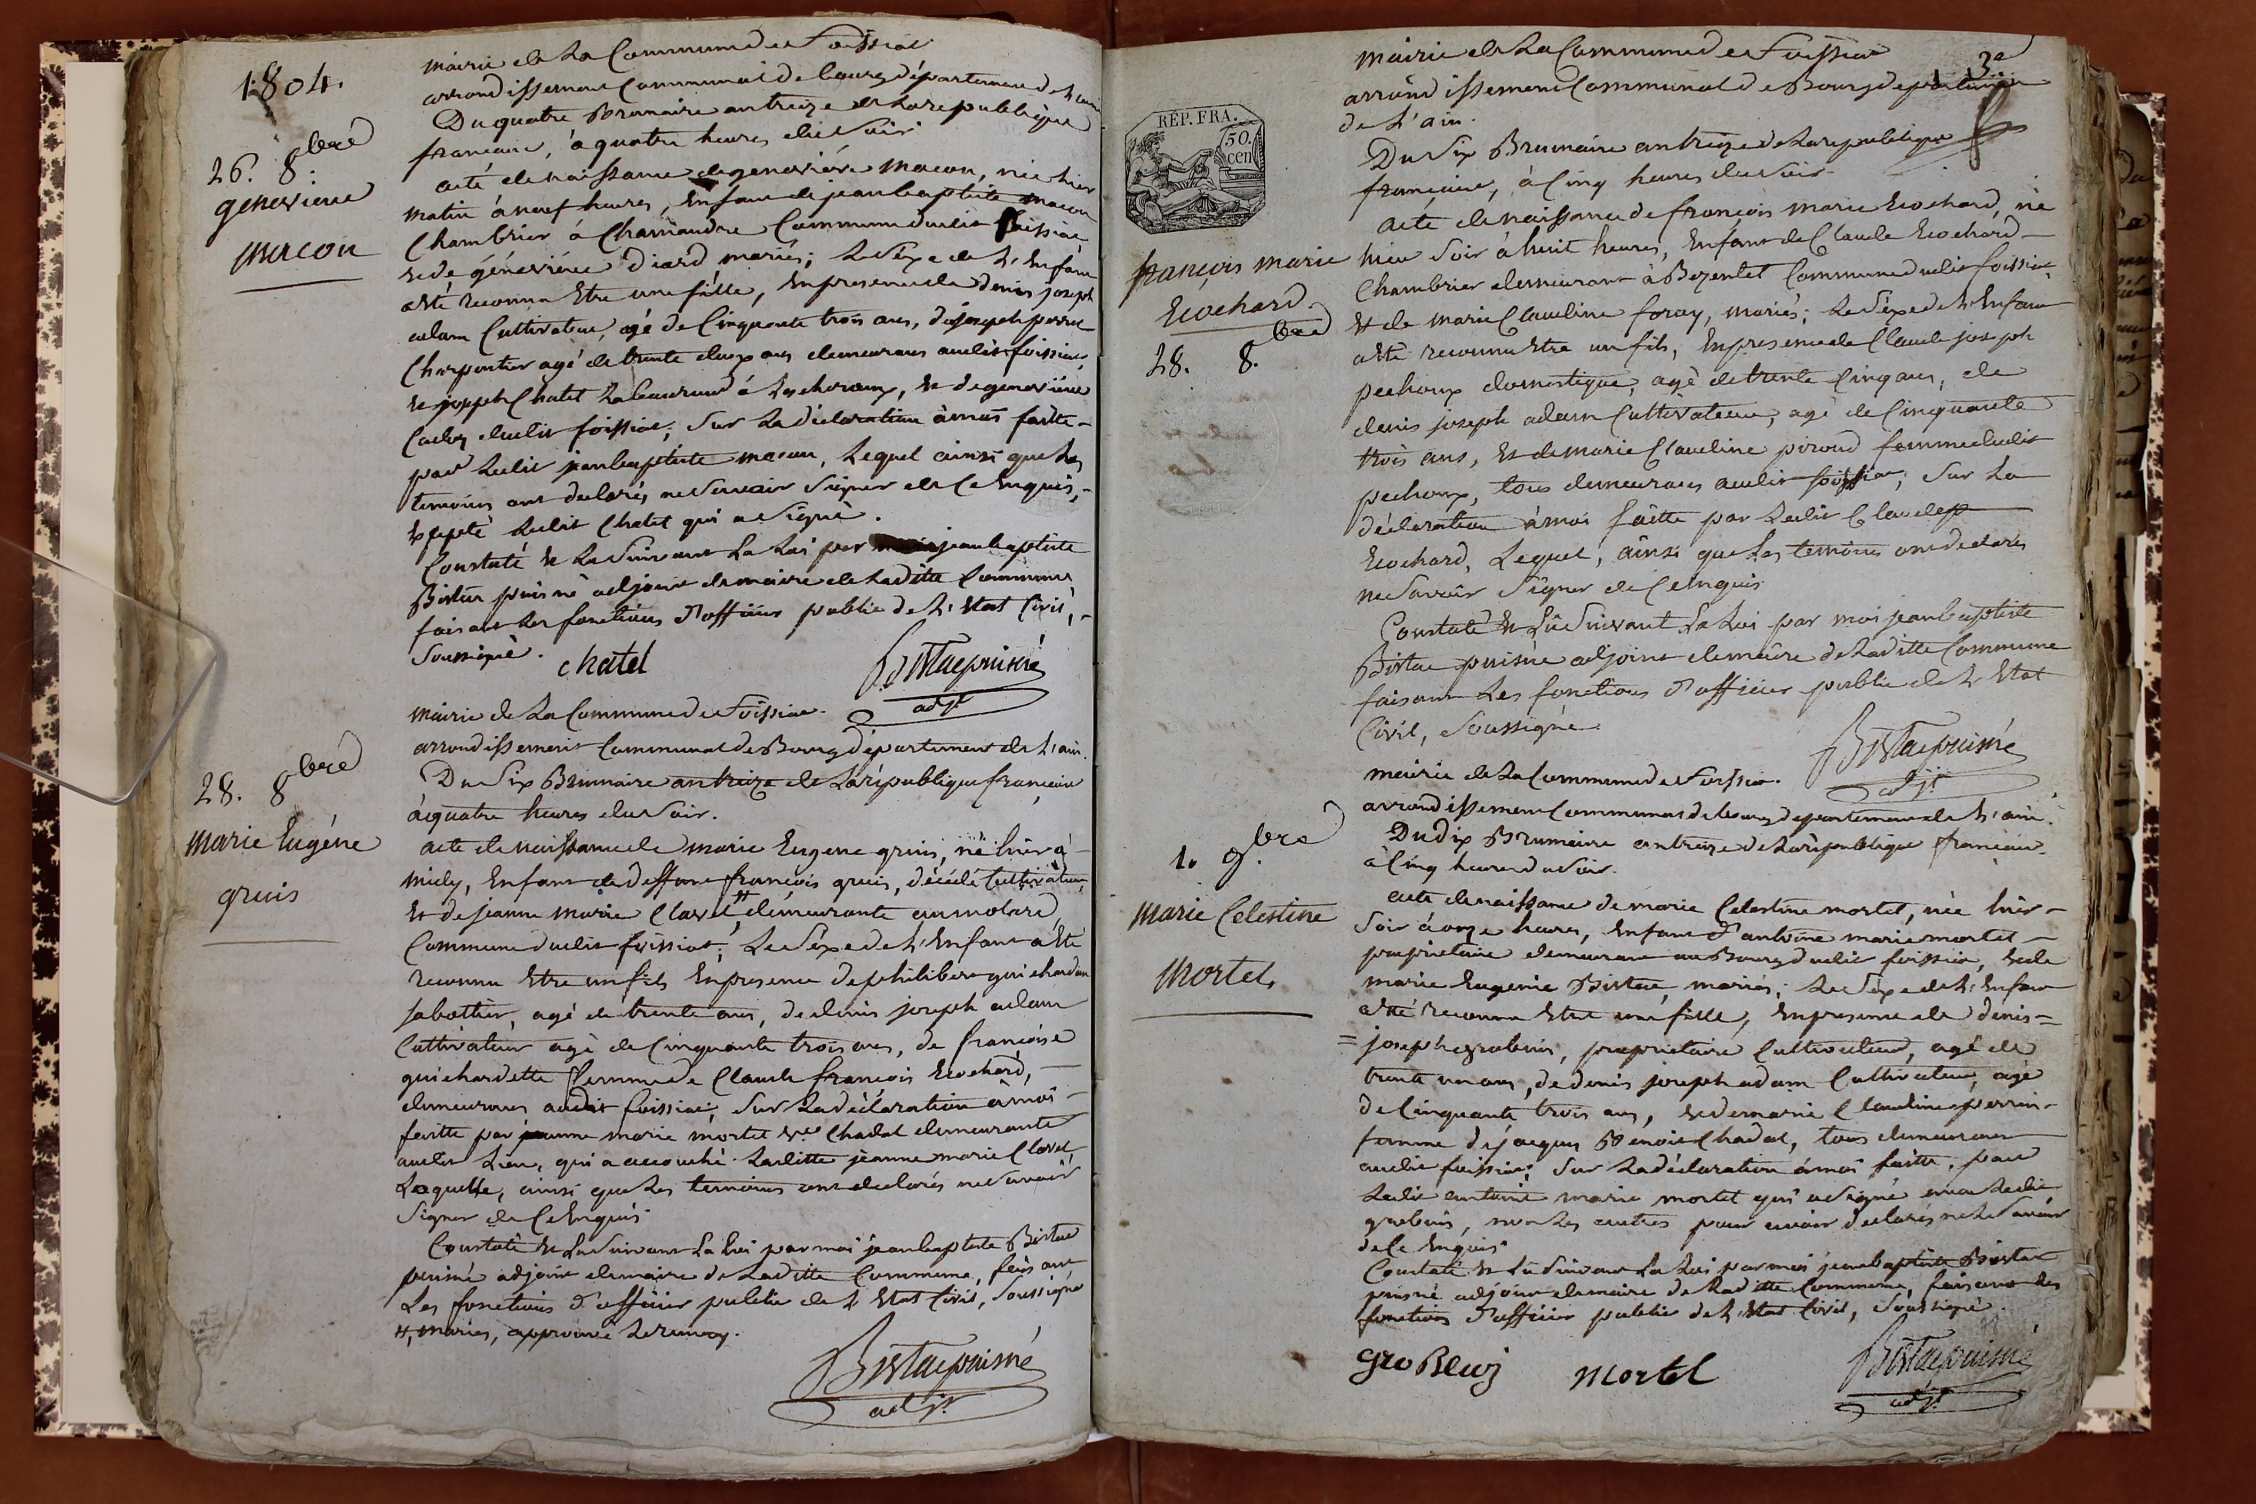 1804.
mairie de La Commune de Foissiat
arrondissement Communal de bourg département de L'ain
Du quatre Brumaire an treize de La republique
francaise, à quatre heures du Soir
26. 8.bre
genevieve
macon
acte de naissance de genevieve macon, née hier
matin à neuf heures, Enfant de jean baptiste macon
Chambrier à Chamandre Commune dudit foissiat
et de géneviéve Diard mariés; Le Séxe de L'Enfant
a été reconnu Etre une fille, En presence de denis joseph
adam Cultivateur, agé de Cinquante trois ans, de joseph
Charpentier agé de trente deux ans demeurans audit foissiat,
et joseph Chatel et de genevieve
dudit foissiat; Sur La déclaration à moi faitte
par Ledit jean baptiste macon, Lequel ainsi que Les
temoins ont declarés ne Savoir Signer de Ce Enquis,
Excepté Ledit Chatel qui a Signé.
Constaté et Lu Suivant La Loi par jean baptiste
Bistac puisné adjoint de maire de Laditte Commune
faisant Les fonctions d'officier public de L'Etat Civil,
Soussigné.
chatel
Bistac puisné
adjt
mairie de La Commune de Foissiat.
arrondissement Communal de Bourg département de L'ain.
28. 8bre
marie Eugéne
gruis
Du Six Brumaire an treize de La république francaise
à quatre heures du Soir.
acte de naissance de marie Eugene gruis, né hier à
midy, Enfant de deffunt francois gruis, décédé Cultivateur,
Et de jeanne marie Clavel # demeurante au molard
Commune dudit foissiat; Le Séxe de L'Enfant a été
reconnu Etre un fils En presence de philibert guichardon
sabottier, agé de trente ans, de denis joseph adam
Cultivateur agé de Cinquante trois ans, de francoise
guichardette femme de Claude francois Ecochard,
demeurans audit foissiat; Sur La déclaration à moi
faitte par jeanne marie mortel vve Chadal demeurante
audit Lieu, qui a accouché Laditte jeanne marie Clavel,
Laquelle, ainsi que Les temoins ont declarés ne Savoir
Signer de Ce Enquis
Constaté et Lu Suivant La Loi par moi jean baptiste Bistac
puisné adjoint de maire de Laditte Commune, faisant
Les fonctions d'officier public de L'Etat Civil, Soussigné
#, mariés, approuvé Le renvoy.
Bistac puisné
adjt
mairie de La Commune de Foissiat
arrondissement Communal de Bourg departement
de L'ain.
RÉP. FRA.
50.
cen
Du Six Brumaire an treize de La republique
francaise, à Cinq heures du Soir
françois marie
Ecochard
28. 8.bre
acte de naissance de françois marie Ecochard, né
hier Soir à huit heures, Enfant de Claude Ecochard
Chambrier demeurant à Bezentet Commune dudit foissiat,
Et de marie Claudine foray, mariés; Le Séxe de L'Enfant
a été reconnu Etre un fils, En presence de Claude joseph
pechoux domestique, agé de trente Cinq ans, de
denis joseph adam Cultivateur, agé de Cinquante
trois ans, Et de marie Claudine piroud femme dudit
pechoux, tous demeurans audit foissiat; Sur La
déclaration à moi faitte par Ledit Claude
Ecochard, Lequel, ainsi que Les temoins ont declarés
ne Savoir Signer de Ce Enquis
Constaté et Lu Suivant La Loi par moi jean baptiste
Bistac puisné adjoint de maire de Laditte Commune
faisant Les fonctions d'officier public de L'Etat
Civil, Soussigné
Bistac puisné
adjt
mairie de La Commune de Foissiat.
arrondissement Communal de bourg departement de L'ain.
1. 9.bre
marie Celestine
mortel
Du dix Brumaire an treize de La république francaise
à Cinq heures du Soir.
acte de naissance de marie Celestine mortel, née hier
Soir à onze heures, Enfant d'antoine marie mortel
proprietaire demeurant au Bourg dudit foissiat, et de
marie Eugenie Bistac, mariés; Le Séxe de L'Enfant
a été reconnu Etre une fille, En presence de denis
joseph grobuis, proprietaire Cultivateur, agé de
trente un ans, de denis joseph adam Cultivateur, agé
de Cinquante trois ans, et de marie Claudine perrin
femme de jacques Benoit Chadal, tous demeurans
audit foissiat; Sur La déclaration à moi faitte, par
Ledit antoine marie mortel qui a Signé avec Ledit
grobuis, non Les autres pour avoir declarés ne Le Savoir
de Ce Enquis
Constaté et Lu Suivant La Loi par moi jean baptiste Bistac
puisné adjoint de maire de Laditte Commune, faisant Les
fonctions d'officier public de L'Etat Civil, Soussigné.
mortel
Bistac puisné
adjt